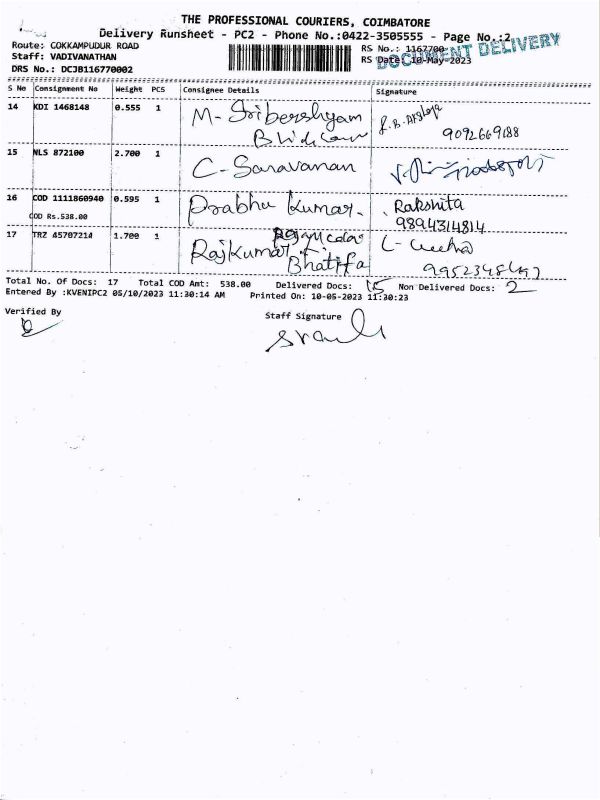 THE PROFESSIONAL COURIERS, COIMBATORE
Delivery Runsheet - PC2 - Phone No.:0422-3505555 - Page No.:2
DOCUMENT DELIVERY
Route: COKKAMPUDUR ROAD
RS No.: 1167700
Staff: VADIVANATHAN
RS Date: 10-May-2023
DRS No.: DCJB116770002
S No Consignment No Weight PCS Consignee Details Signature
14 KDI 1468148 0.555 1 M-
9092669188
15 NLS 872100 2.700 1 C-Saravanan
16 COD 1111860940 0.595 1 Prabhu Kumar. Rakshita
COD Rs.538.00 9894314814
17 TRZ 45707214 1.700 1 Rajkumar
Total No. Of Docs: 17 Total COD Amt: 538.00 Delivered Docs: 15 Non Delivered Docs: 2
Entered By :KVENIPC2 05/10/2023 11:30:14 AM Printed On: 10-05-2023 11:30:23
Verified By
Staff Signature